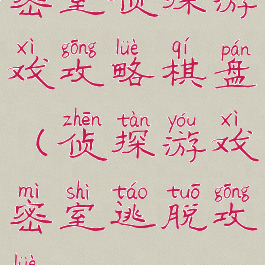 密室侦探游
xì gōng lüè qí pán
戏攻略棋盘
zhēn tàn yóu xì
（侦探游戏
mì shì táo tuō gōng
密室逃脱攻
lüè